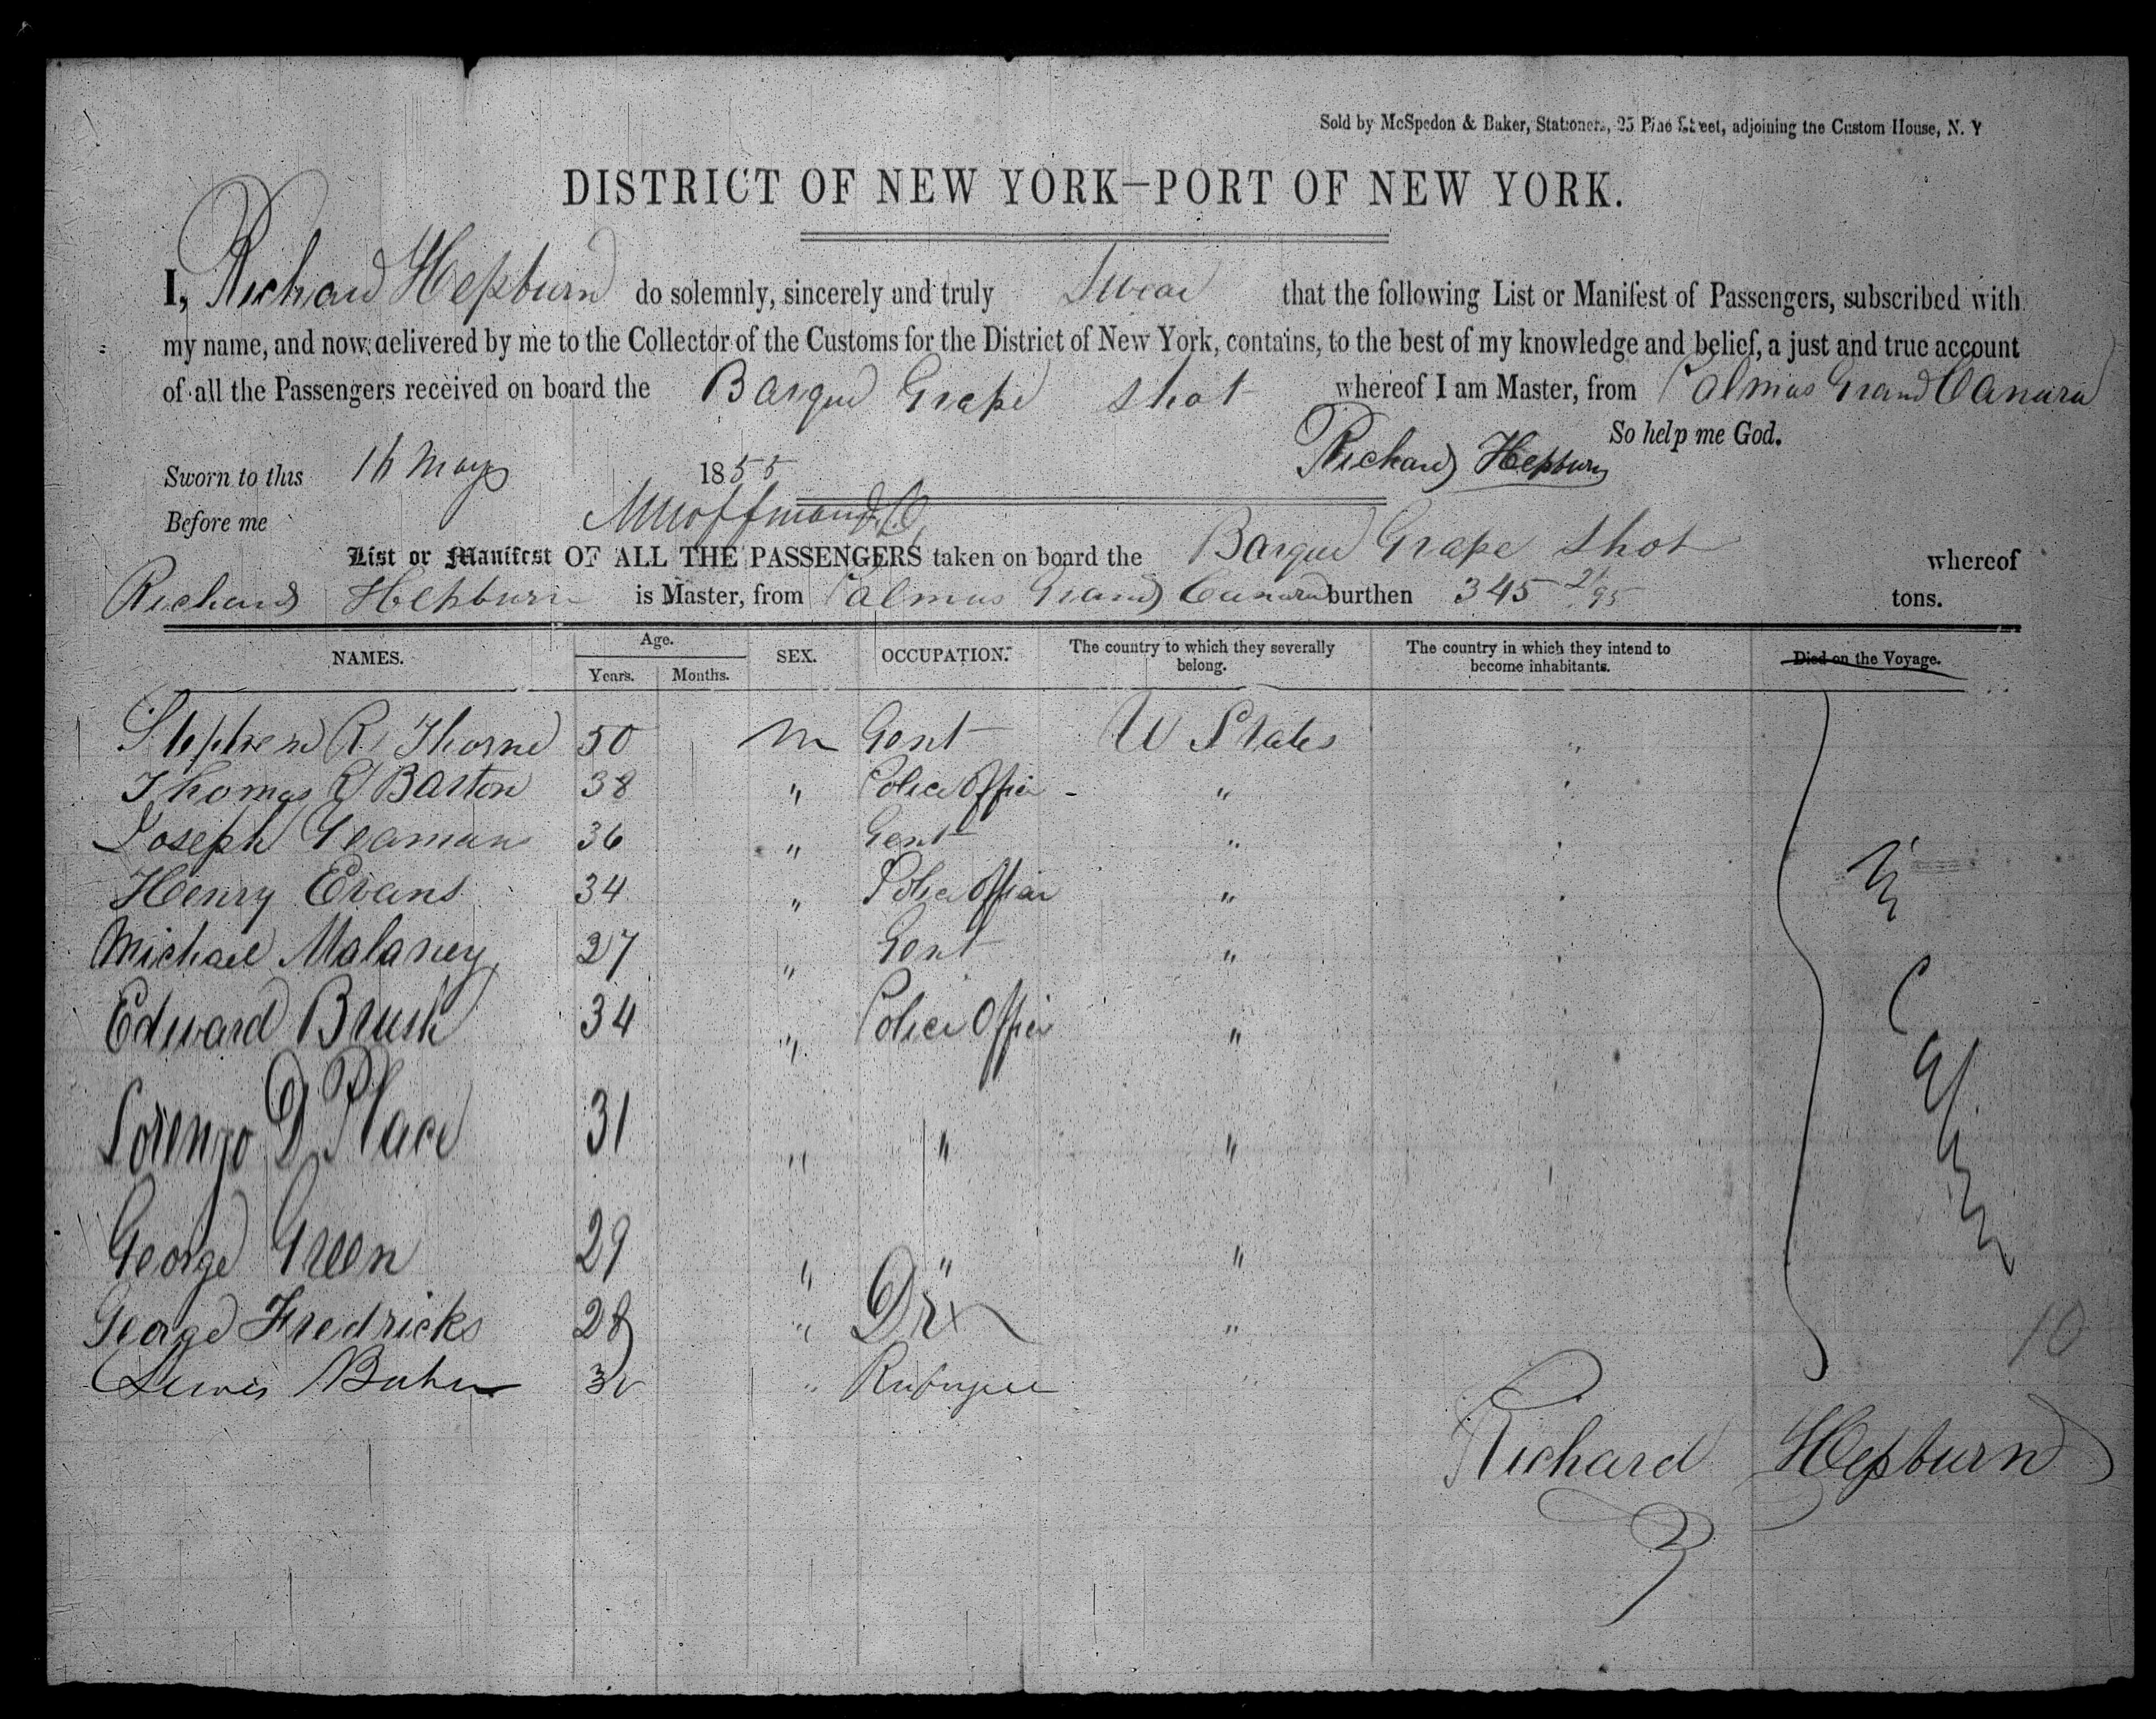 Sold by McSpedon & Baker, Stationers, 25 Pine Street, adjoining the Custom House, N. Y
DISTRICT OF NEW YORK—PORT OF NEW YORK.
I, Richard Hepburn do solemnly, sincerely and truly Swear that the following List or Manifest of Passengers, subscribed with
my name, and now delivered by me to the Collector of the Customs for the District of New York, contains, to the best of my knowledge and belief, a just and true account
of all the Passengers received on board the Barque Grape Shot whereof I am Master, from Palmas Grand Canara
So help me God.
Sworn to this 16 May 1855 Richard Hepburn
Before me
List or Manifest OF ALL THE PASSENGERS taken on board the Barque Grape Shot whereof
Richard Hepburn is Master, from Palmas Grand Canara burthen 345 21/95 tons.
NAMES. Age. Years. Months. SEX. OCCUPATION. The country to which they severally belong. The country in which they intend to become inhabitants. Died on the Voyage.
Stephen R. Thorne 50 M Gent U States "
Thomas Barton 38 " Police Officer - " "
Joseph 36 " Gent " "
Henry Evans 34 " Police Officer " "
Michael Malaney 27 " Gent " "
Edward Brush 34 " Police Officer "
Lorenzo D Place 31 " " " "
George Green 29 " " "
George Fredricks 28 " Dr "
Lewis 30 " "
In Cabin
10
Richard Hepburn